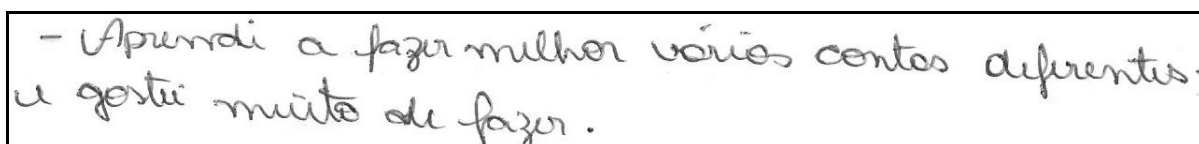 - Aprendi a fazer melhor vários contos diferentes.
e gostei muito de fazer.